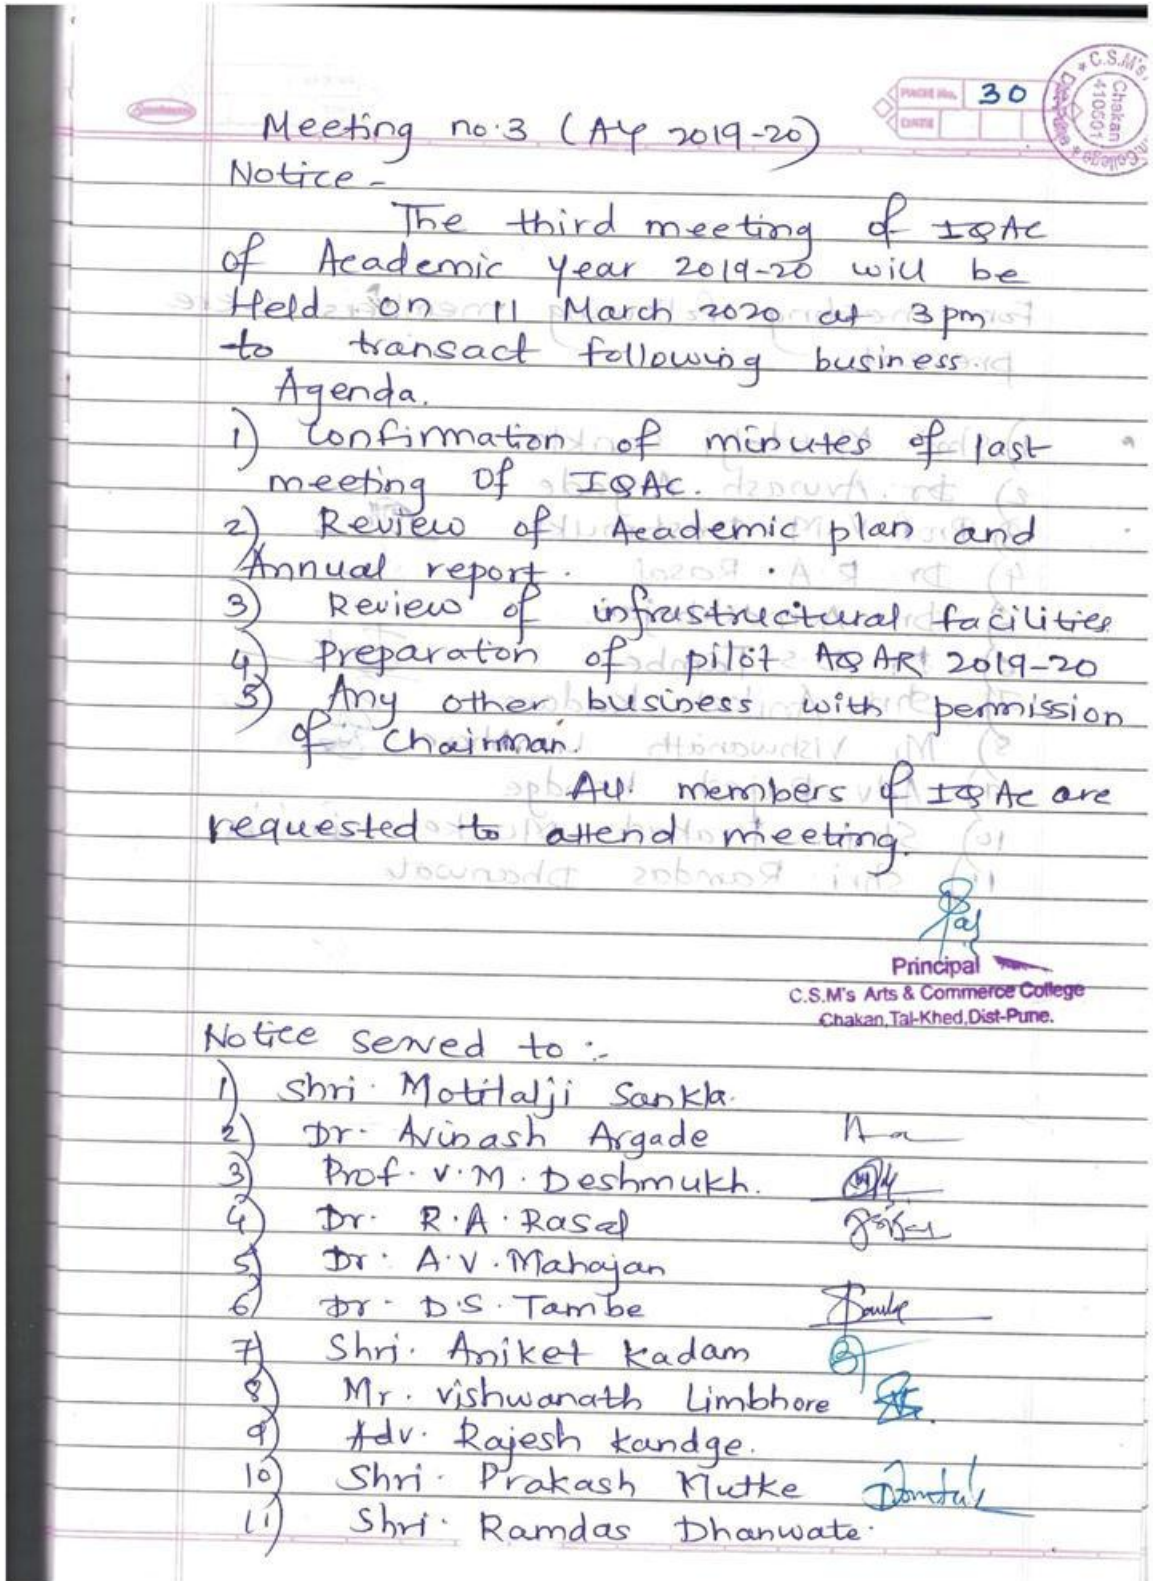 PAGE No. 30
DATE
C.S.M's.
Chakan
410501
College
Meeting no.3 (AY 2019-20)
Notice -
The third meeting of IQAC
of Academic year 2019-20 will be
Held on 11 March 2020 at 3 pm
to transact following business.
Agenda.
1) Confirmation of minutes of last
meeting of IQAC.
2) Review of Academic plan and
Annual report.
3) Review of infrastructural facilities
4) Preparaton of pilot AQAR 2019-20
5) Any other business with permission
of Chairman.
All members of IQAC are
requested to attend meeting.
Principal
C.S.M's Arts & Commerce College
Chakan, Tal-Khed, Dist-Pune.
Notice served to :-
1) Shri. Motilalji Sankla.
2) Dr. Avinash Argade
3) Prof. V.M. Deshmukh.
4) Dr. R.A. Rasal
5) Dr. A.V. Mahajan
6) Dr. D.S. Tambe
7) Shri. Aniket Kadam
8) Mr. Vishwanath Limbhore
9) Adv. Rajesh Kandge.
10) Shri. Prakash Mutke
11) Shri. Ramdas Dhanwate.